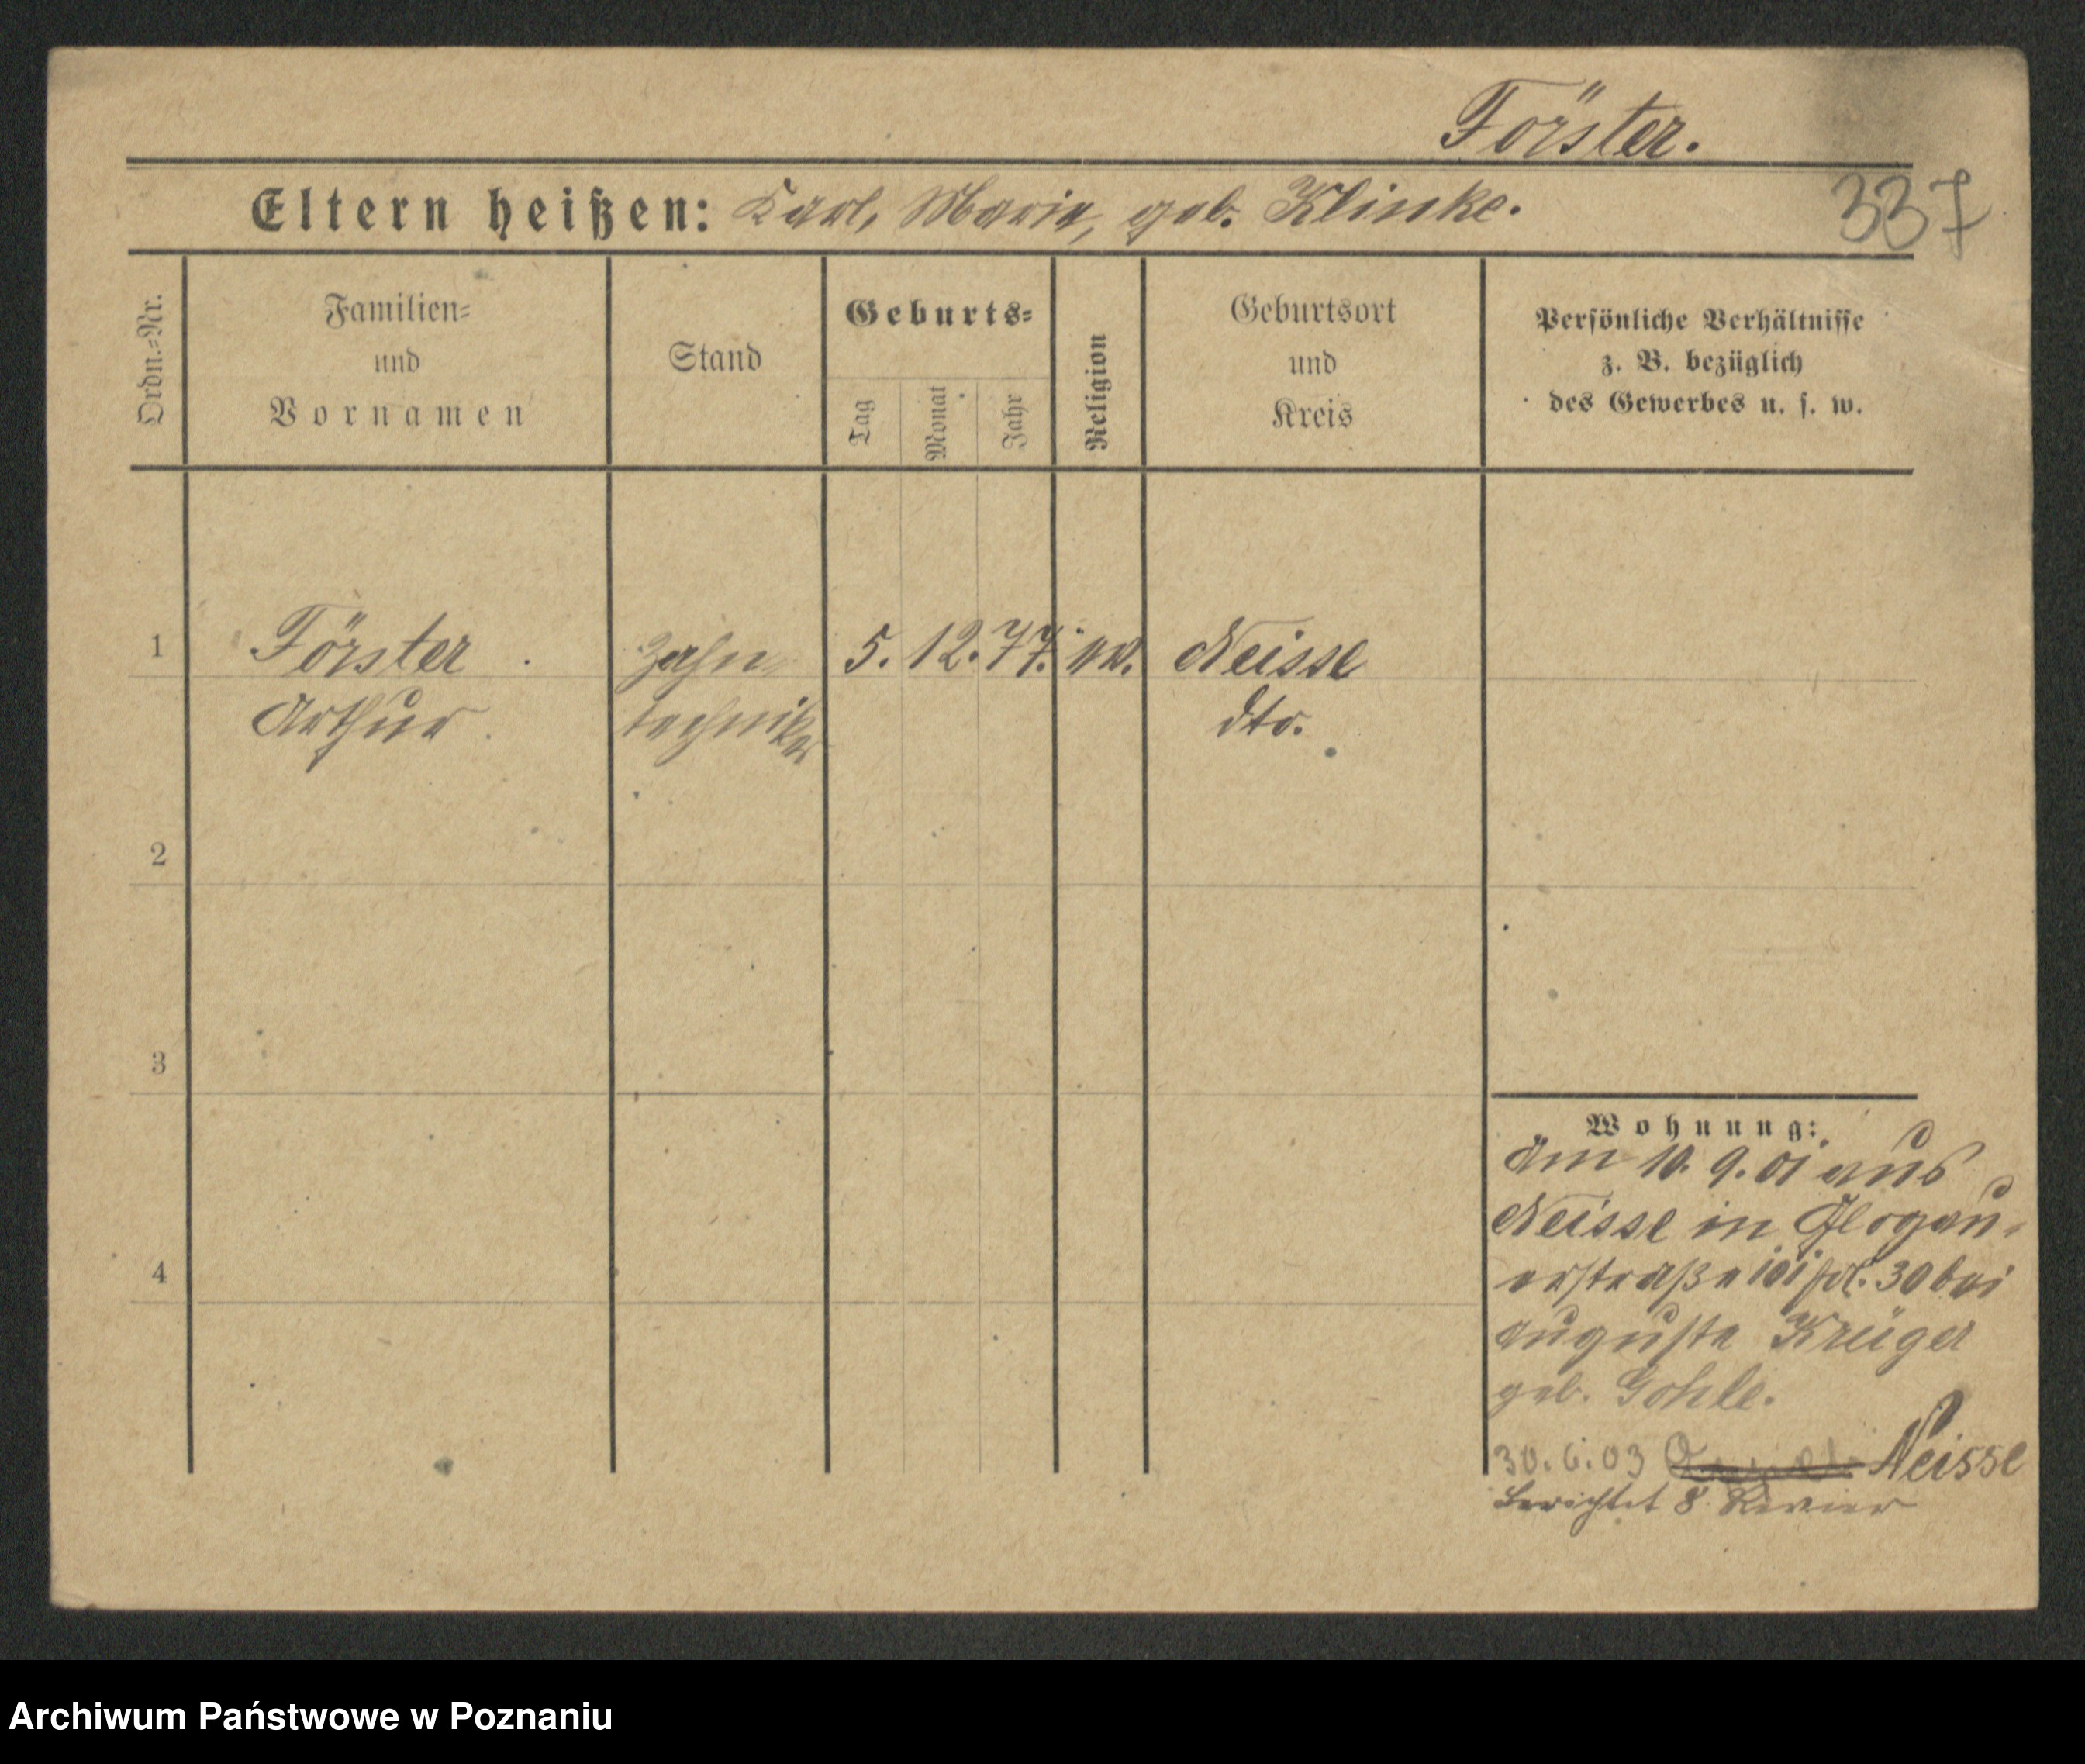 Förster.
Eltern heißen: Karl, Maria, geb. Klinke.
337
Ordn.=Nr.
Familien=
und
Vornamen
Stand
Geburts=
Tag
Monat
Jahr
Religion
Geburtsort
und
Kreis
Persönliche Verhältnisse
z. B. bezüglich
des Gewerbes u. s. w.
1 Förster Zahn 5. 12. 77. Neisse
Arthur techniker dto.
2
3
4
Wohnung:
Am 10. 9. 01 aus
Neisse in Glogau-
erstraße 101 30 bei
Auguste Krüger
geb. Gohle.
30. 6. 03 Neisse
berichtet 8 Revier
Archiwum Państwowe w Poznaniu